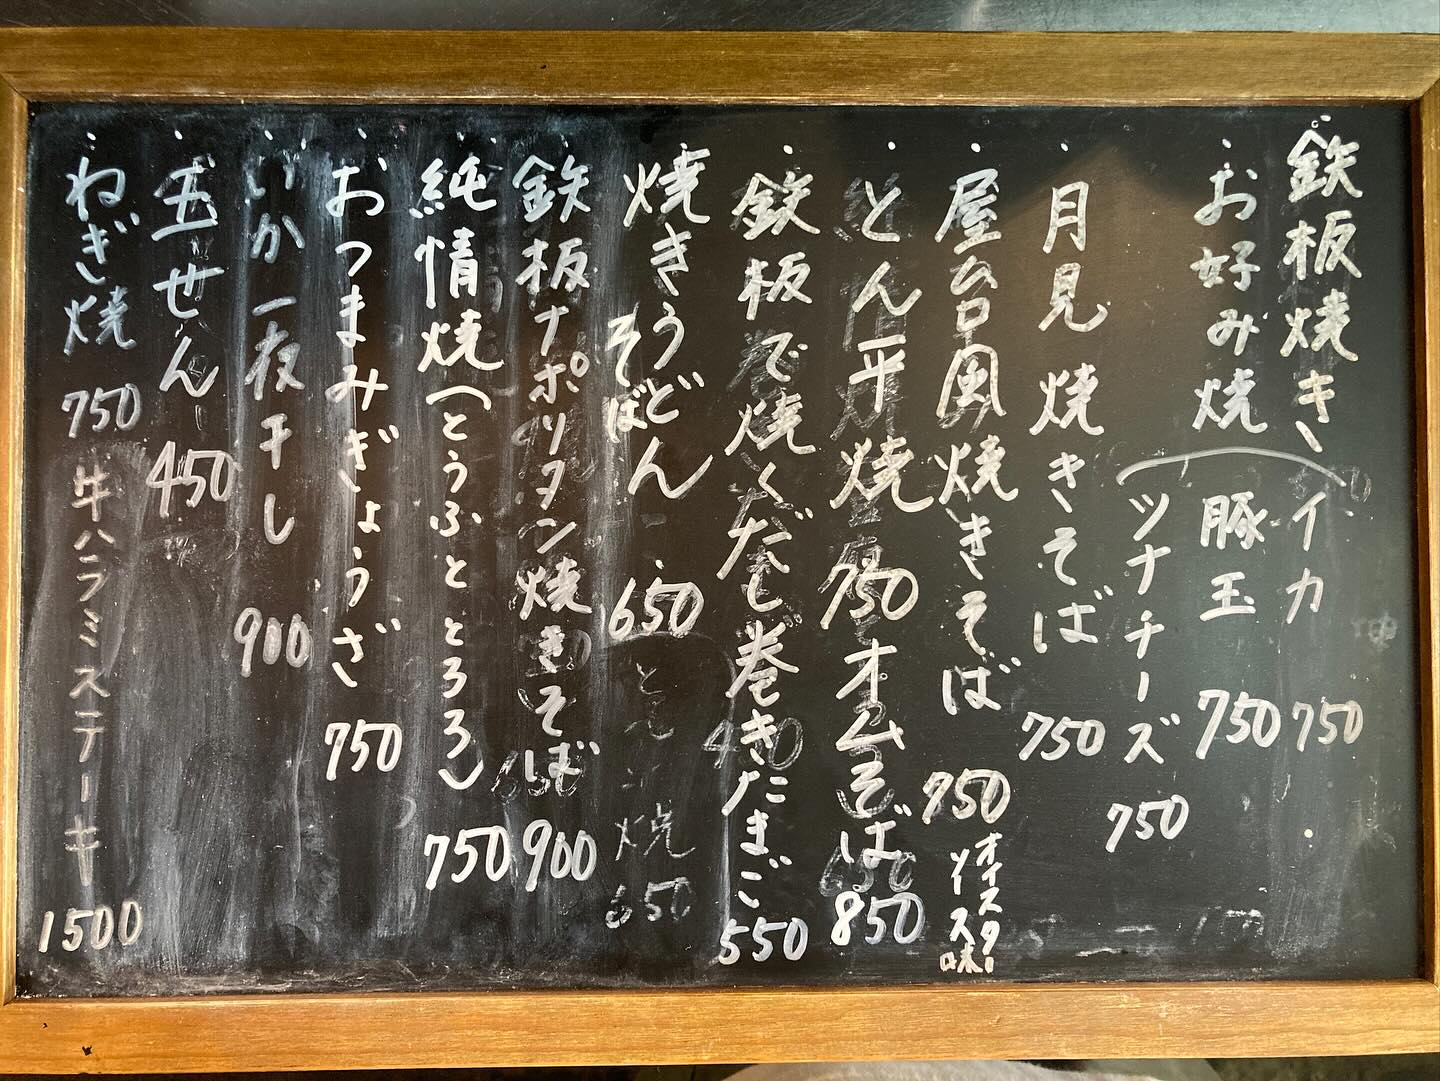 鉄板焼き
お好み焼
イカ 750
豚玉 750
ツナチーズ 750
月見焼きそば 750
屋台風焼きそば 750
オイスターソース味
とん平焼 750
オムそば 850
鉄板で焼くだし巻きたまご 550
焼きうどん
そば
650
鉄板ナポリタン焼きそば 900
純情焼(とうふととろろ) 750
おつまみぎょうざ 750
いか一夜干し 900
玉せん 450
ねぎ焼 750
牛ハラミステーキ 1500